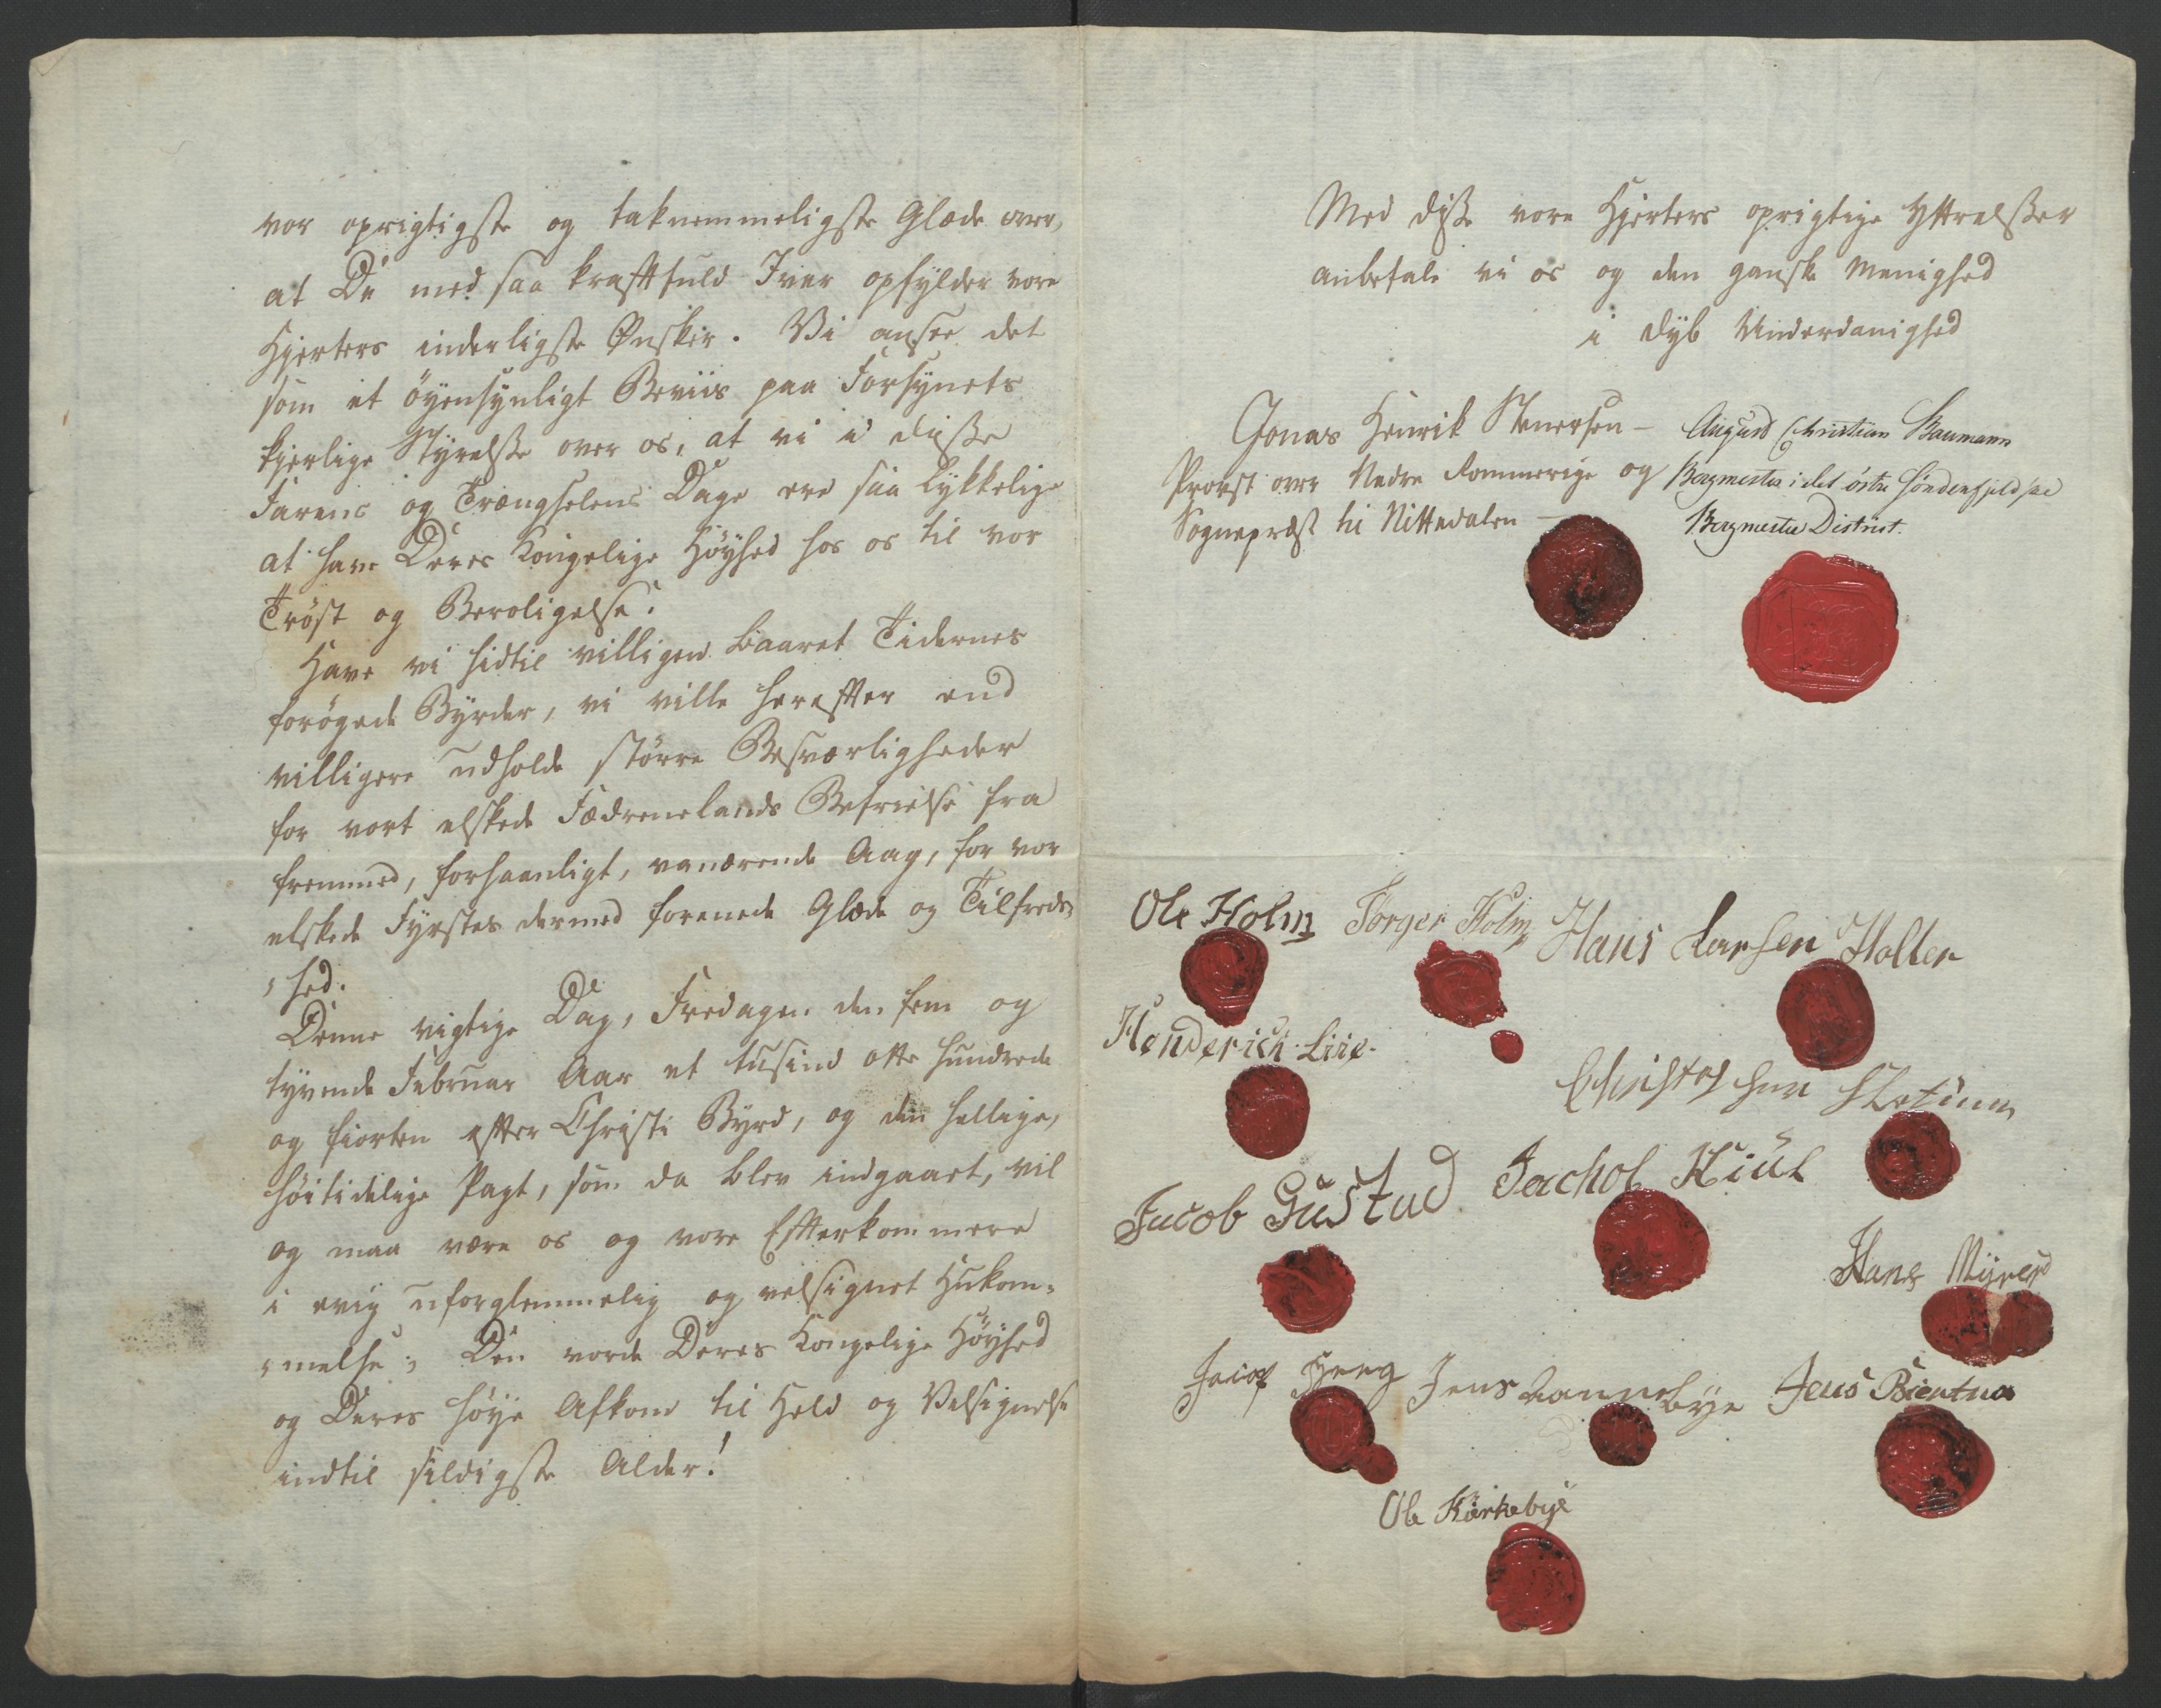 vor oprigtigste og taknemmeligste Glæde over,
at De med saa kraftfuld Iver opfylder vore
Hjerters inderligste Ønsker. Vi ansee det
som et öyensynligt Beviis paa Forsynets
kjerlige Styrelse over os, at vi i disse
Farens og Trængselens Dage ere saa lykkelige
at have Deres Kongelige Höyhed hos os til vor
Tröst og Beroligelse.
Have vi hidtil villigen baaret Tidernes
forögede Byrder, vi ville herefter end
villigere udholde större Besværligheder
for vort elskede Fædrenelands Befrielse fra
fremmed, forhaanligt, vanærende Aag, for vor
elskede Fyrstes dermed forenede Glæde og Tilfreds-
-hed.
Denne vigtige Dag, Fredagen den fem og
tyvende Februar Aar et tusind otte hundrede
og fiorten efter Christi Byrd, og den hellige,
höitidelige Pagt, som da blev indgaaet, vil
og maa være os og vore Efterkommere
i evig uforglemmelig og velsignet Hukom-
-melse; Den vorde Deres Kongelige Höyhed
og Deres höye Afkom til Held og Velsignelse
indtil sildigste Alder!
Med disse vore Hjerters oprigtige Yttrelsser
anbefale vi os og den ganske Menighed
i dyb Underdanighed
Jonas Henrik Stenersen - August Christian Baumann
Provst over Nedre Rommerige og Bergmester i det östre Söndenfjeldske
Sognepræst til Nittedalen - Bergmester District.
Ole Holm Törger Holm Hans Larsen Holter
Henderich Liie.
Christopher Sletiunn
Jacob Gustad Jachob Kiul
Hans Myrer
Jacob Hång Jens Dannebye Jens
Ole Kirkebye